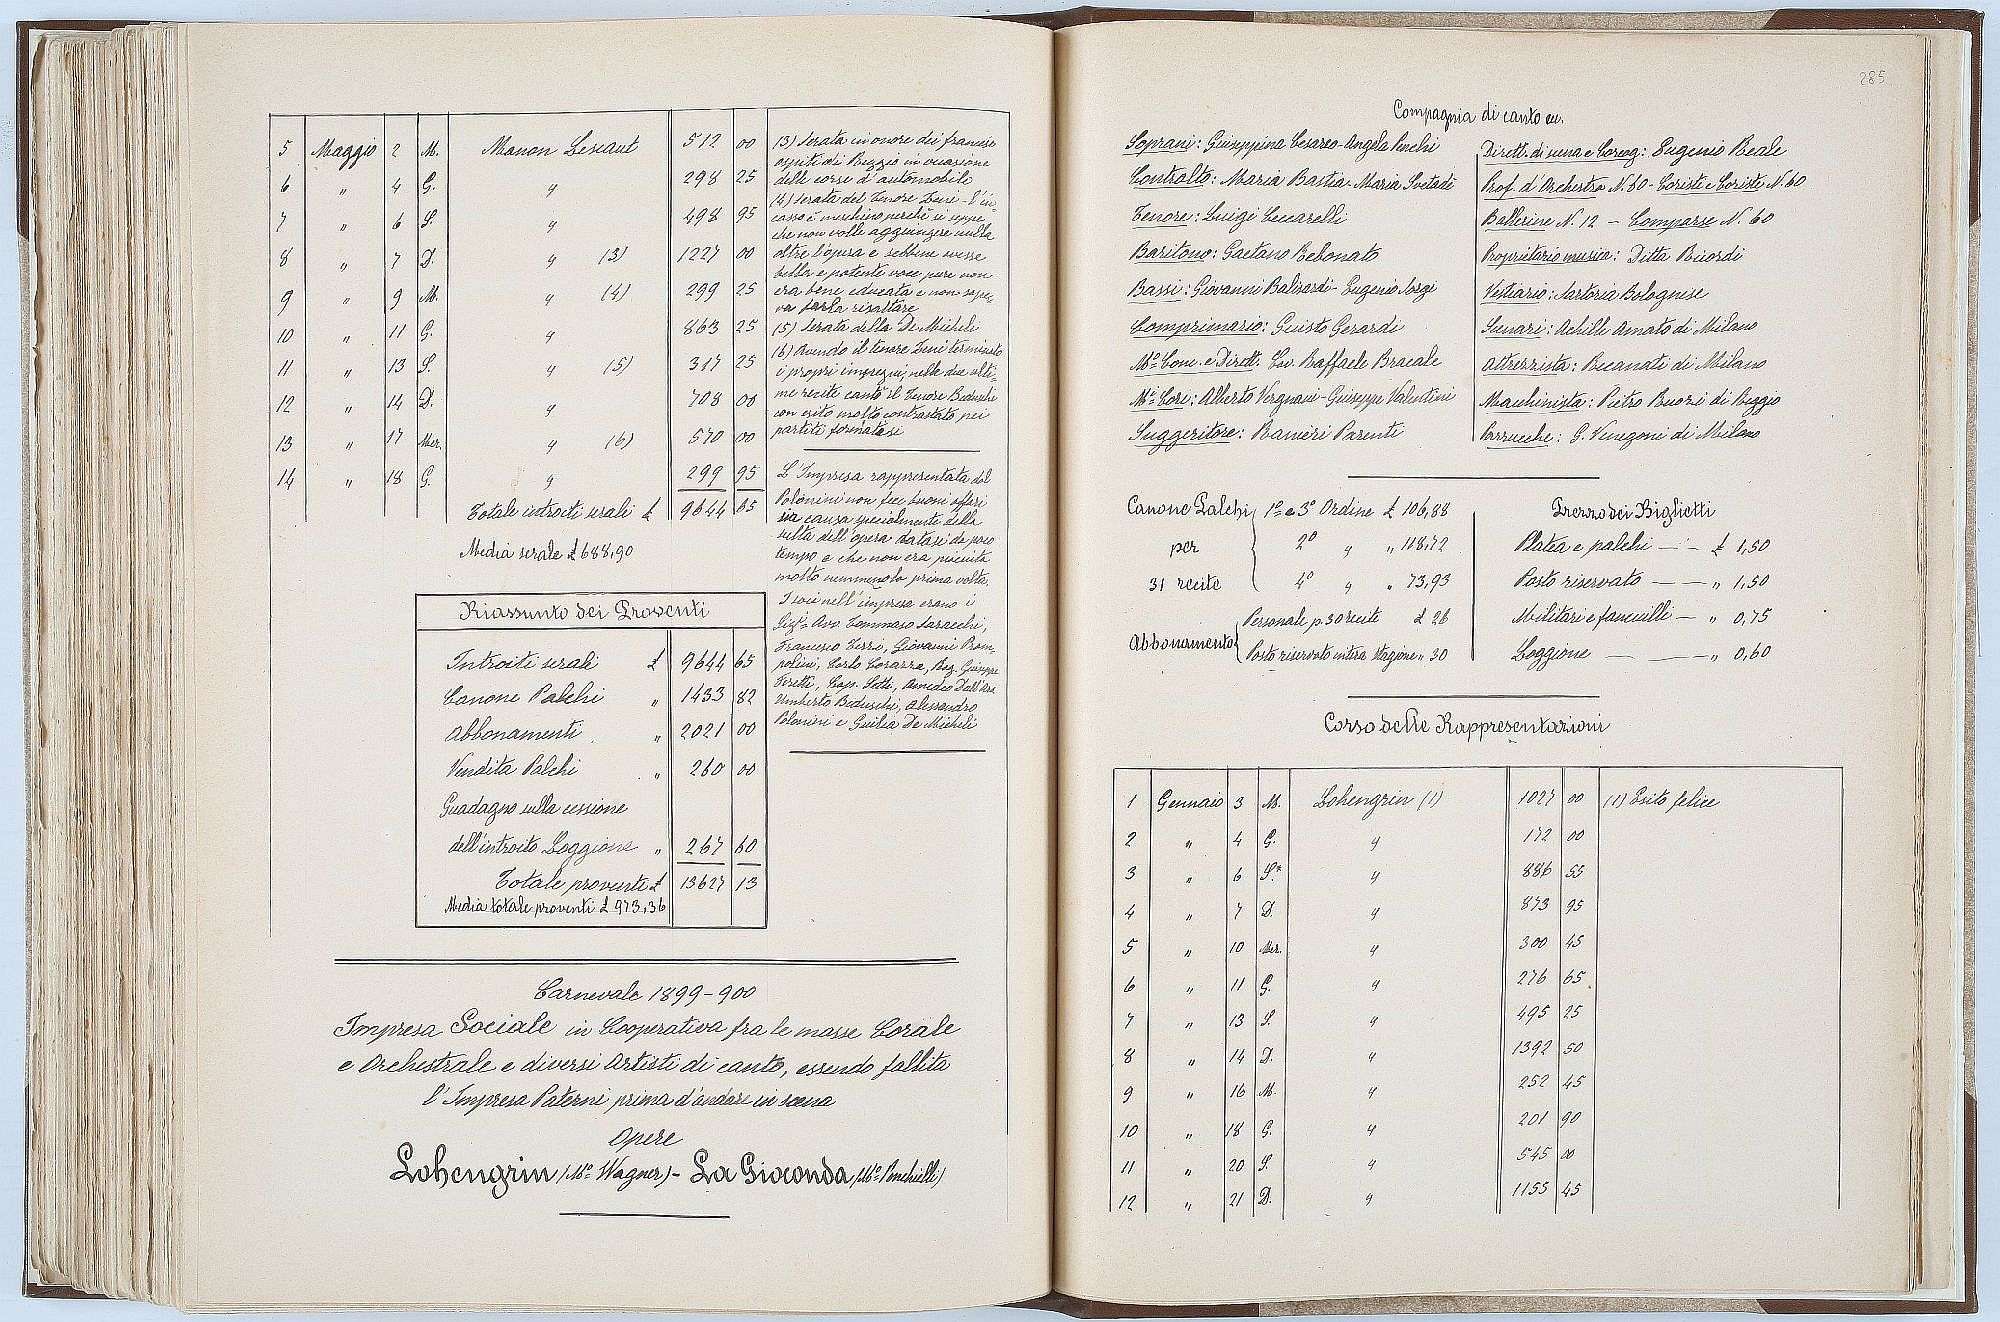 5 Maggio 2 M. Manon Lescaut 512 00
6 " 4 G. " 298 25
7 " 6 S. " 498 95
8 " 7 D. " (3) 1227 00
9 " 9 M. " (4) 299 25
10 " 11 G. " 863 25
11 " 13 S. " (5) 317 25
12 " 14 D. " 708 00
13 " 17 Mer. " (6) 570 00
14 " 18 G. " 299 95
Totale introiti serali £ 9644 65
Media serale £ 688,90
(3) Serata in onore dei francesi
ospiti di Reggio in occasione
delle corse d'automobile
(4) Serata del Tenore Zeni - l'in-
casso è meschino perchè si seppe
che non volle aggiungere nulla
oltre l'opera e sebbene avesse
bella e potente voce pure non
era bene educata e non sape-
va farla risaltare
(5) Serata della De Micheli
(6) Avendo il tenore Zeni terminato
i propri impegni, nelle due ulti-
me recite cantò il Tenore Beduschi
con esito molto contrastato pei
partiti formatasi
L'Impresa rappresentata dal
Polonini non fece buoni affari
sia causa specialmente della
scelta dell'opera datasi da poco
tempo e che non era piaciuta
molto nemmeno la prima volta.
I soci nell'impresa erano i
Sigri Avv. Tommaso Saracchi,
Francesco Terzi, Giovanni Pram-
polini, Carlo Corazza, Rag. Giuseppe
Ferretti, Cap. Sotti, Amedeo Dall'Ara
Umberto Beduschi, Alessandro
Polonini e Giulia De Micheli
Riassunto dei Proventi
Introiti serali £ 9644 65
Canone Palchi " 1433 82
Abbonamenti " 2021 00
Vendita Palchi " 260 00
Guadagno sulla cessione
dell'introito Loggione " 267 60
Totale proventi £ 13627 13
Media totale proventi £ 973,36
Carnevale 1899-900
Impresa Sociale in Cooperativa fra le masse Corale
e Orchestrale e diversi Artisti di canto, essendo fallita
l'Impresa Paterni prima d'andare in scena
Opere
Lohengrin (Mo Wagner) - La Gioconda (Mo Ponchielli)
285
Compagnia di canto ecc.
Soprani: Giuseppina Cesareo - Angela Penchi
Contralto: Maria Bastia - Maria Svetadi
Tenore: Luigi Ceccarelli
Baritono: Gaetano Rebonato
Bassi: Giovanni Balisardi - Eugenio Sorgi
Comprimario: Guisto Gerardi
Mo Conc. e Dirett. Cav. Raffaele Bracale
Mi Cori: Alberto Vergnani - Giuseppe Valentini
Suggeritore: Ranieri Parenti
Dirett. di scena e Coreog: Eugenio Reale
Prof. d'Orchestra N. 60 - Coristi e Coriste N. 60
Ballerine N. 12 - Comparse N. 60
Proprietario musica: Ditta Ricordi
Vestiario: Sartoria Bolognese
Scenari: Achille Amato di Milano
Attrezzista: Recanati di Milano
Macchinista: Pietro Buozi di Reggio
Parrucche: G. Venegoni di Milano
Canone Palchi 1o e 3o Ordine £ 106,88
per 2o " " 118,72
31 recite 4o " " 73,93
Abbonamento Personale p. 30 recite £ 26
Posto riservato intera stagione " 30
Prezzo dei Biglietti
Platea e palchi - £ 1,50
Posto riservato - " 1,50
Militari e fanciulli - " 0,75
Loggione - " 0,60
Corso delle Rappresentazioni
1 Gennaio 3 M. Lohengrin (1) 1027 00 (1) Esito felice
2 " 4 G. " 172 00
3 " 6 S. " 886 55
4 " 7 D. " 873 95
5 " 10 Mer. " 300 45
6 " 11 G. " 276 65
7 " 13 S. " 495 25
8 " 14 D. " 1392 50
9 " 16 M. " 252 45
10 " 18 G. " 201 90
11 " 20 S. " 545 00
12 " 21 D. " 1155 45